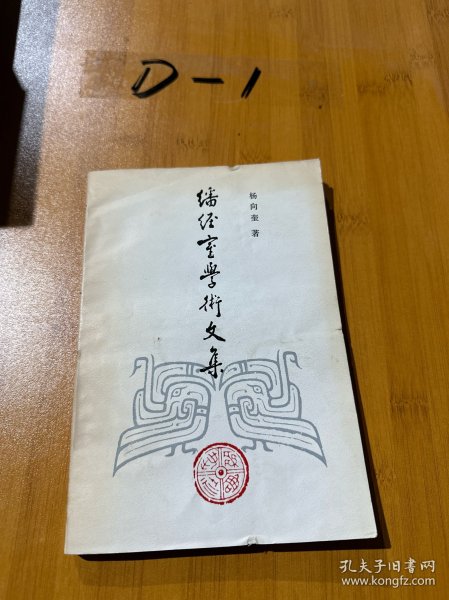 D-1
杨向奎 著
繙经室學術文集
孔夫子旧书网
www.kongfz.com